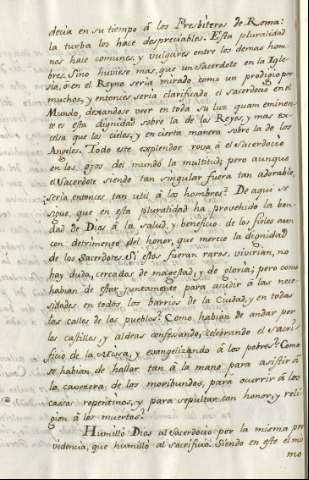 decia en su tiempo á los Presbiteros de Roma:
la turba los hace despreciables. Esta pluralidad
nos hace comunes, y vulgares entre los demas hom-
bres. Sino huviese mas, que un Sacerdote en la Igle-
sia, ó en el Reyno seria mirado como un prodigio por
muchos, y entonces seria clarificado el sacerdocio en el
Mundo, dexandose veer en toda su luz quam eminen-
te es esta dignidad sobre la de los Reyes, y mas exc-
elsa que los cielos, y en cierta manera sobre la de los
Angeles. Todo este explendor rova á el Sacerdocio
en los ojos del mundo la multitud; pero aunque
el Sacerdote siendo tan singular fuera tan adorable,
seria entonces tan util á los hombres? De aqui se
sigue, que en esta pluralidad ha provehido la bon-
dad de Dios á la salud, y beneficio de los fieles aun
con detrimento del honor, que merece la dignidad
de los Sacerdotes. Si estos fueran raros, vivirian, no
hay duda, cercados de magestad, y de gloria; pero como
habian de estar juntamente para acudir á las nece-
sidades en todos los barrios de la Ciudad, y en todas
las calles de los pueblos? Como habian de andar por
los castillos y aldeas confesando, celebrando el sacri-
ficio de la Misa, y evangelizando á los pobres? Como
se habian de hallar tan á la mano para asistir á
la cavecera, de los moribundos, para ocurrir á los
casos repentinos, y para sepultar con honor, y reli-
gion á los muertos?
Humilló Dios al Sacerdocio por la misma pro
videncia, que humilló al sacrificio. Siendo en este el mis
mo